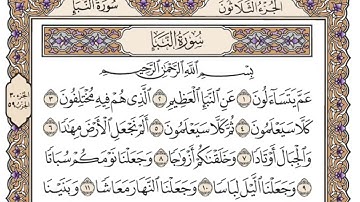 سُورَةُ النَّبَإِ
الجُزْءُ الثَّلَاثُونَ
سُورَةُ النَّبَإِ
بِسْمِ اللَّهِ الرَّحْمَٰنِ الرَّحِيمِ
عَمَّ يَتَسَآءَلُونَ ١ عَنِ النَّبَإِ الْعَظِيمِ ٢ الَّذِي هُمْ فِيهِ مُخْتَلِفُونَ ٣
كَلَّا سَيَعْلَمُونَ ٤ ثُمَّ كَلَّا سَيَعْلَمُونَ ٥ أَلَمْ نَجْعَلِ الْأَرْضَ مِهَٰدًا ٦
وَالْجِبَالَ أَوْتَادًا ٧ وَخَلَقْنَٰكُمْ أَزْوَٰجًا ٨ وَجَعَلْنَا نَوْمَكُمْ سُبَاتًا
٩ وَجَعَلْنَا الَّيْلَ لِبَاسًا ١٠ وَجَعَلْنَا النَّهَارَ مَعَاشًا ١١ وَبَنَيْنَا